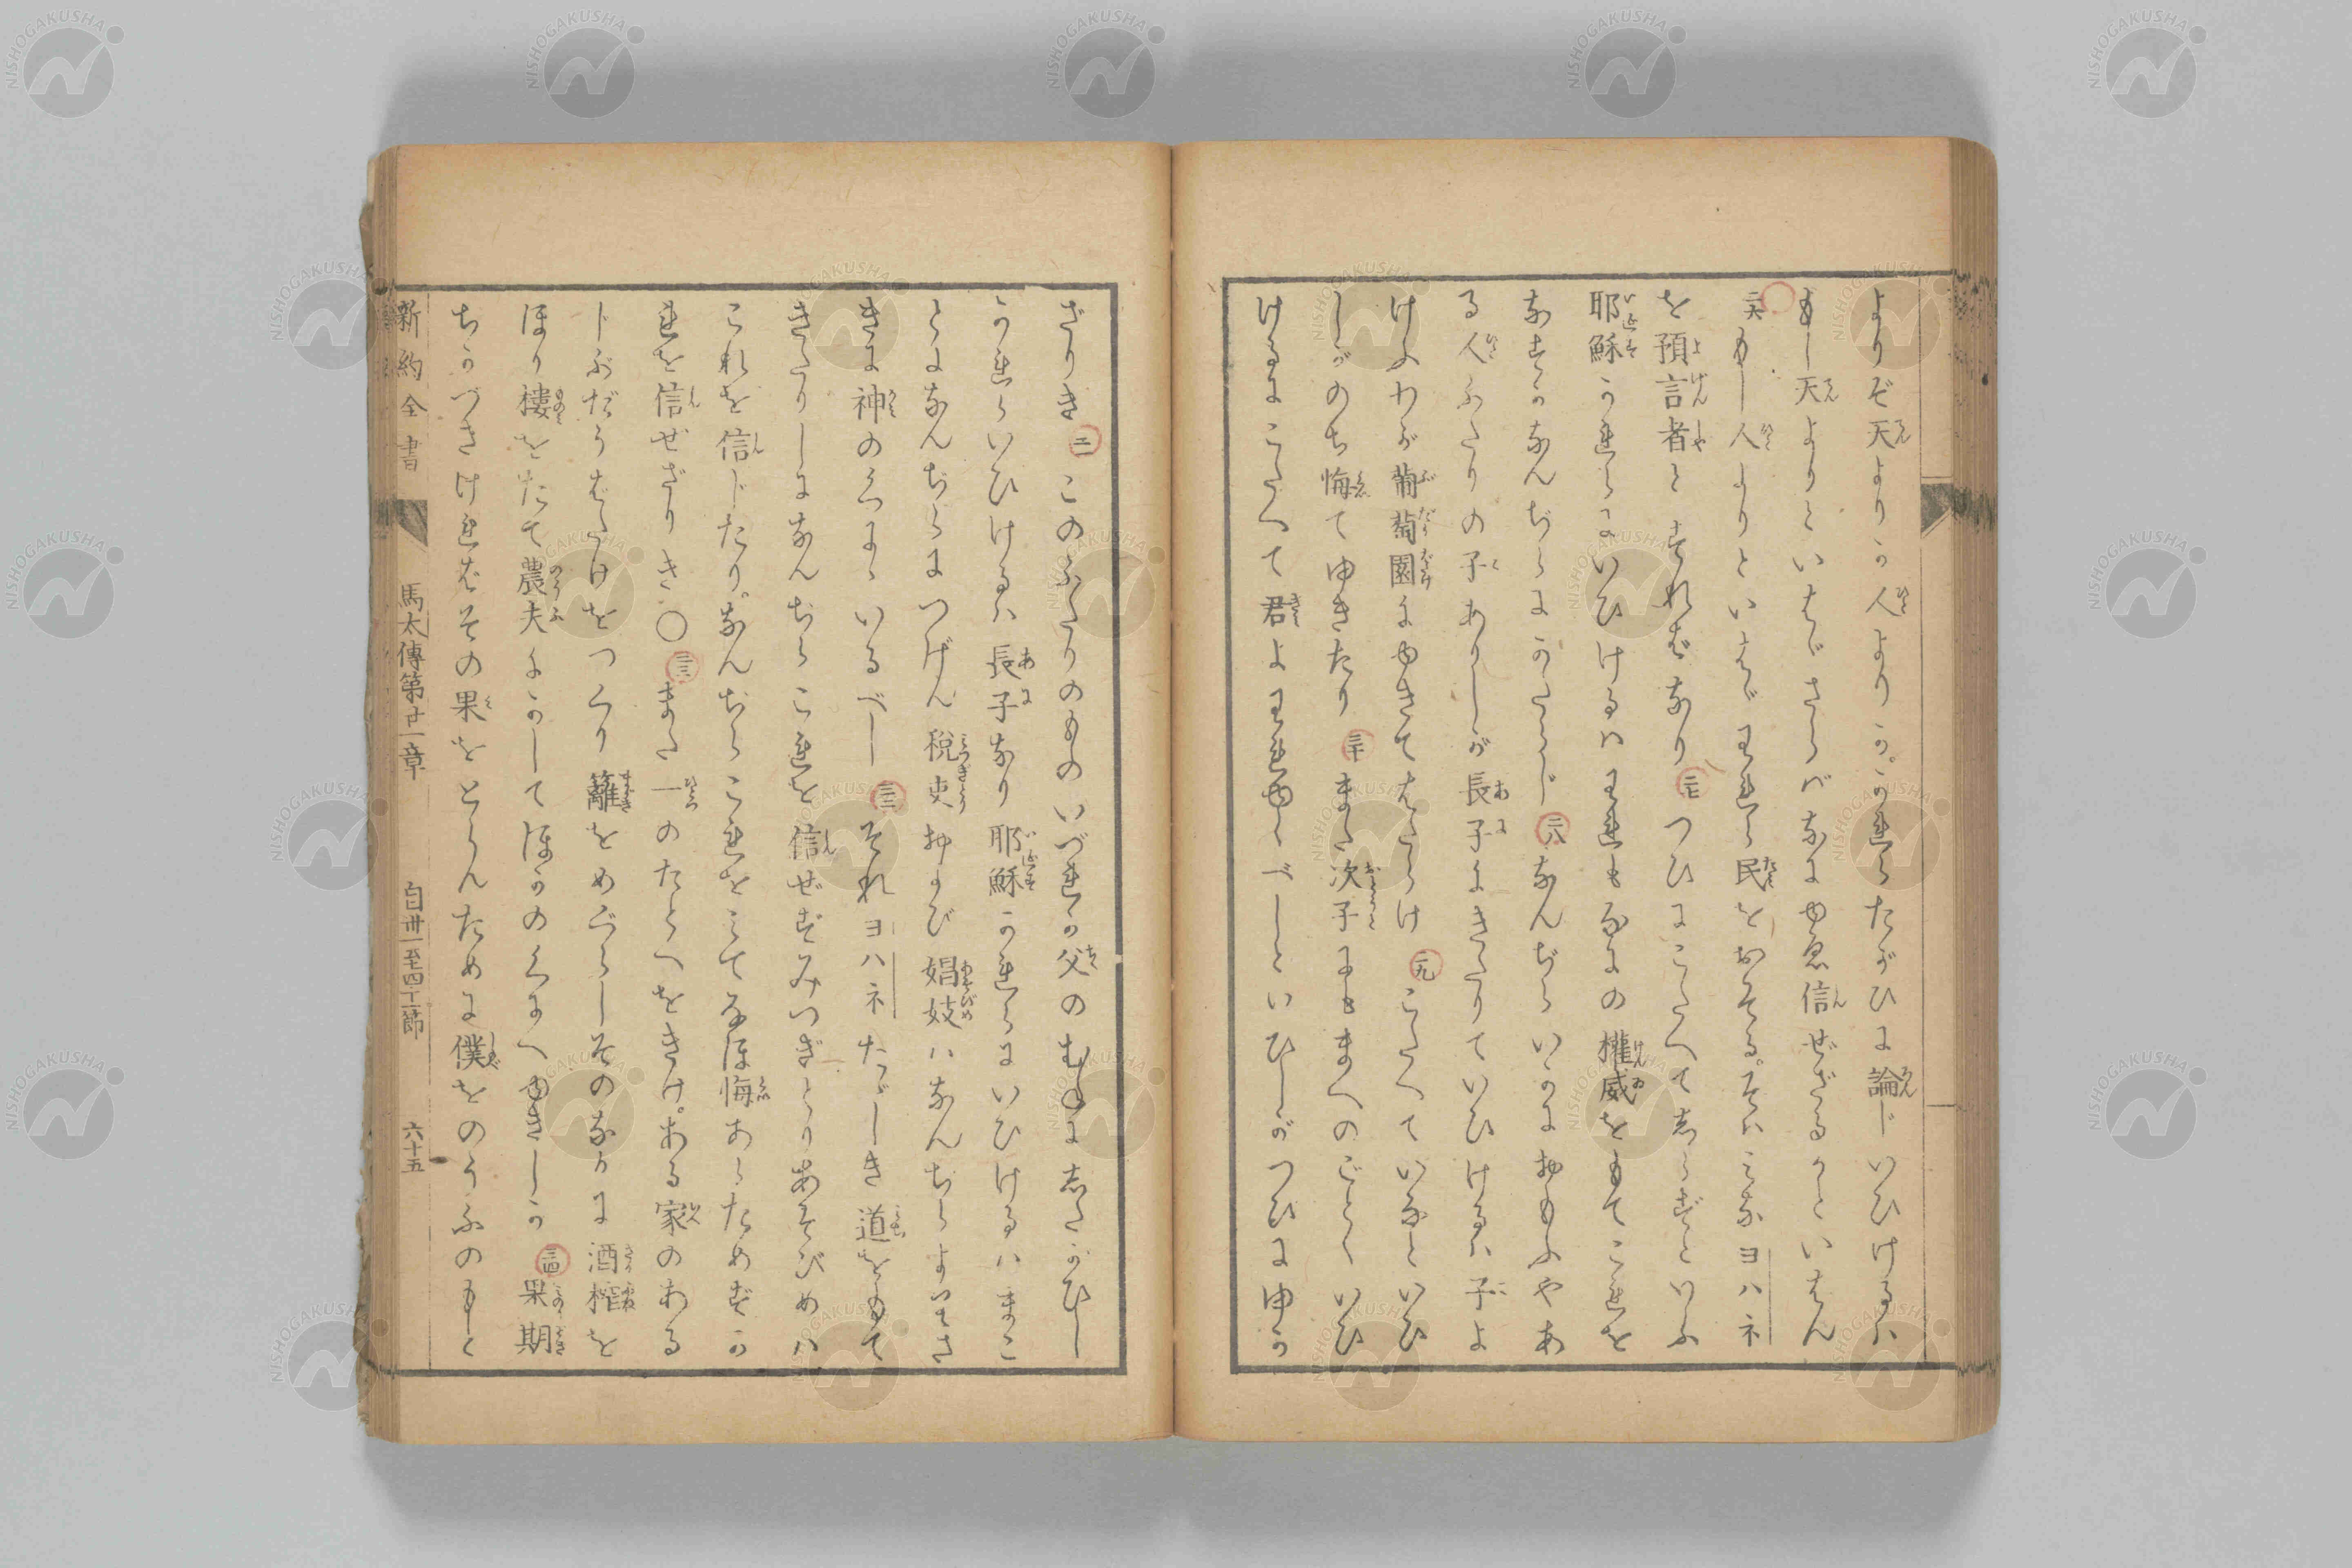 よりぞ天よりか人よりか。かれらたがひに論じいひけるハ
もし天よりといはゞさらバなにゆゑ信ぜざるかといはん
二六もし人よりといはゞわれら民をおそる。そハみなヨハネ
を預言者とすれバなり二七つひにこたへてしらずといふ
耶穌かれらにいひけるハわれもなにの権威をもてこれを
なすかなんぢらにかたらじ二八なんぢらいかにおもふやあ
る人ふたりの子ありしが長子にきたりていひけるハ子よ
けふわが葡萄園にゆきてはたらけ二九こたへていなといひ
しがのち悔てゆきたり三十また次子にもまへのごとくいひ
けるにこたへて君よわれゆくべしといひしがつひにゆか
ざりき三一このふたりのものいづれか父のむねにしたがひし
かれらいひけるハ長子なり耶穌かれらにいひけるハまこ
とになんぢらにつげん税吏および娼妓ハなんぢらよりさ
きに神のくににいるべし三二それヨハネたゞしき道をもて
きたりしになんぢらこれを信ぜずみつぎとりあそびめハ
これを信じたり。なんぢらこれをみてなほ悔あらためずか
れを信ぜざりき〇三三また一のたとへをきけ。ある家のある
じぶだうばたけをつくり籬をめぐらしそのなかに酒榨を
ほり樓をたて農夫にかしてほかのくにへゆきしが三四果期
ちかづきけれバその果をとらんために僕をのうふのもと
新約全書　馬太傳第廿一章　自卅一至四十一節　六十五
NISHOGAKUSHA